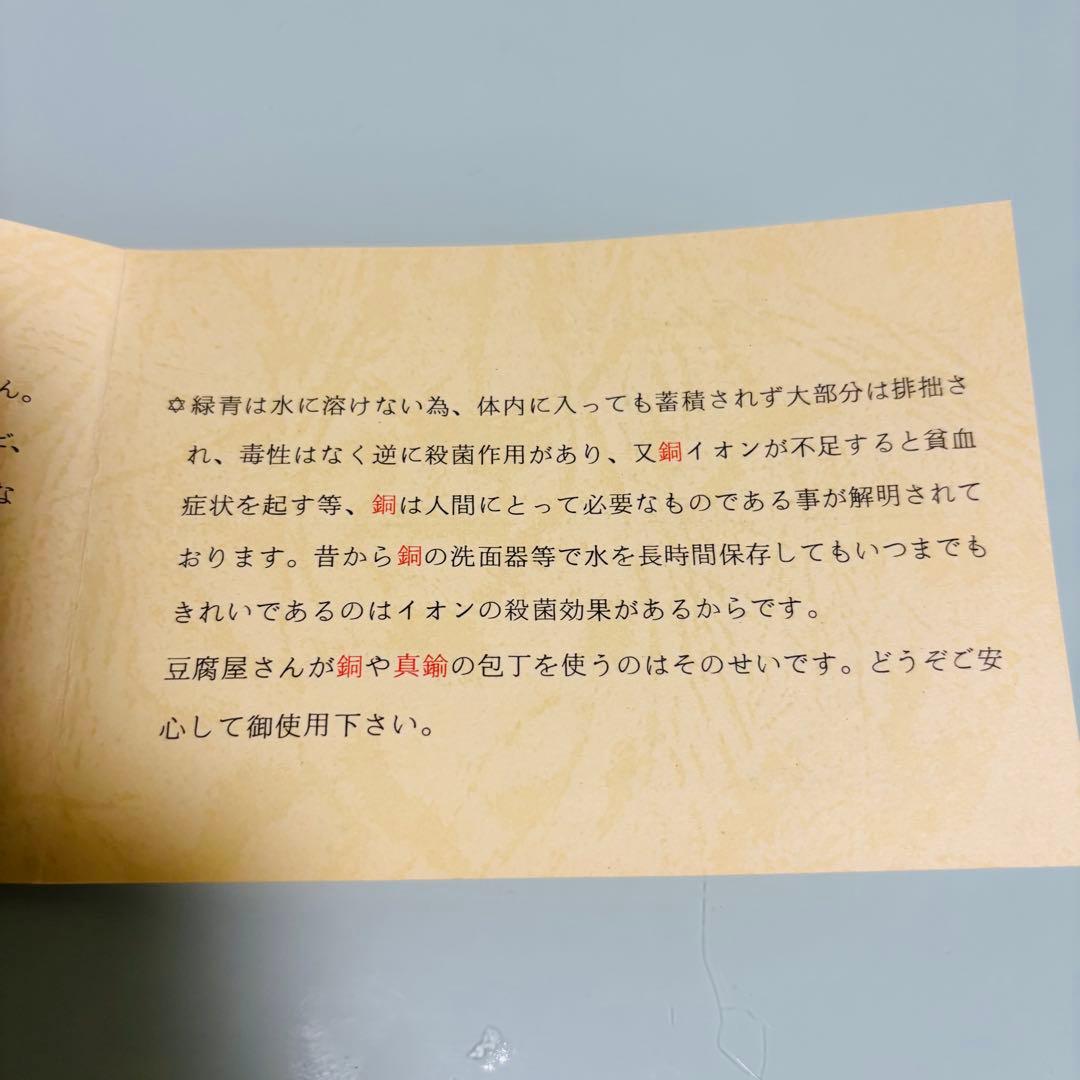 ん。
✡緑青は水に溶けない為、体内に入っても蓄積されず大部分は排拙さ
れ、毒性はなく逆に殺菌作用があり、又銅イオンが不足すると貧血
症状を起す等、銅は人間にとって必要なものである事が解明されて
おります。昔から銅の洗面器等で水を長時間保存してもいつまでも
きれいであるのはイオンの殺菌効果があるからです。
豆腐屋さんが銅や真鍮の包丁を使うのはそのせいです。どうぞご安
心して御使用下さい。